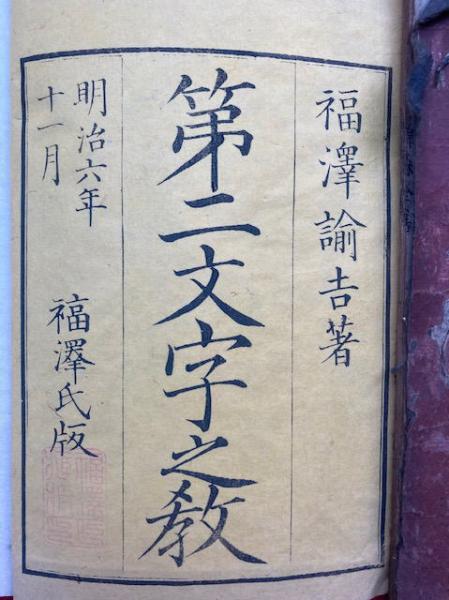 福澤諭吉著
第二文字之教
明治六年
十一月
福澤氏版